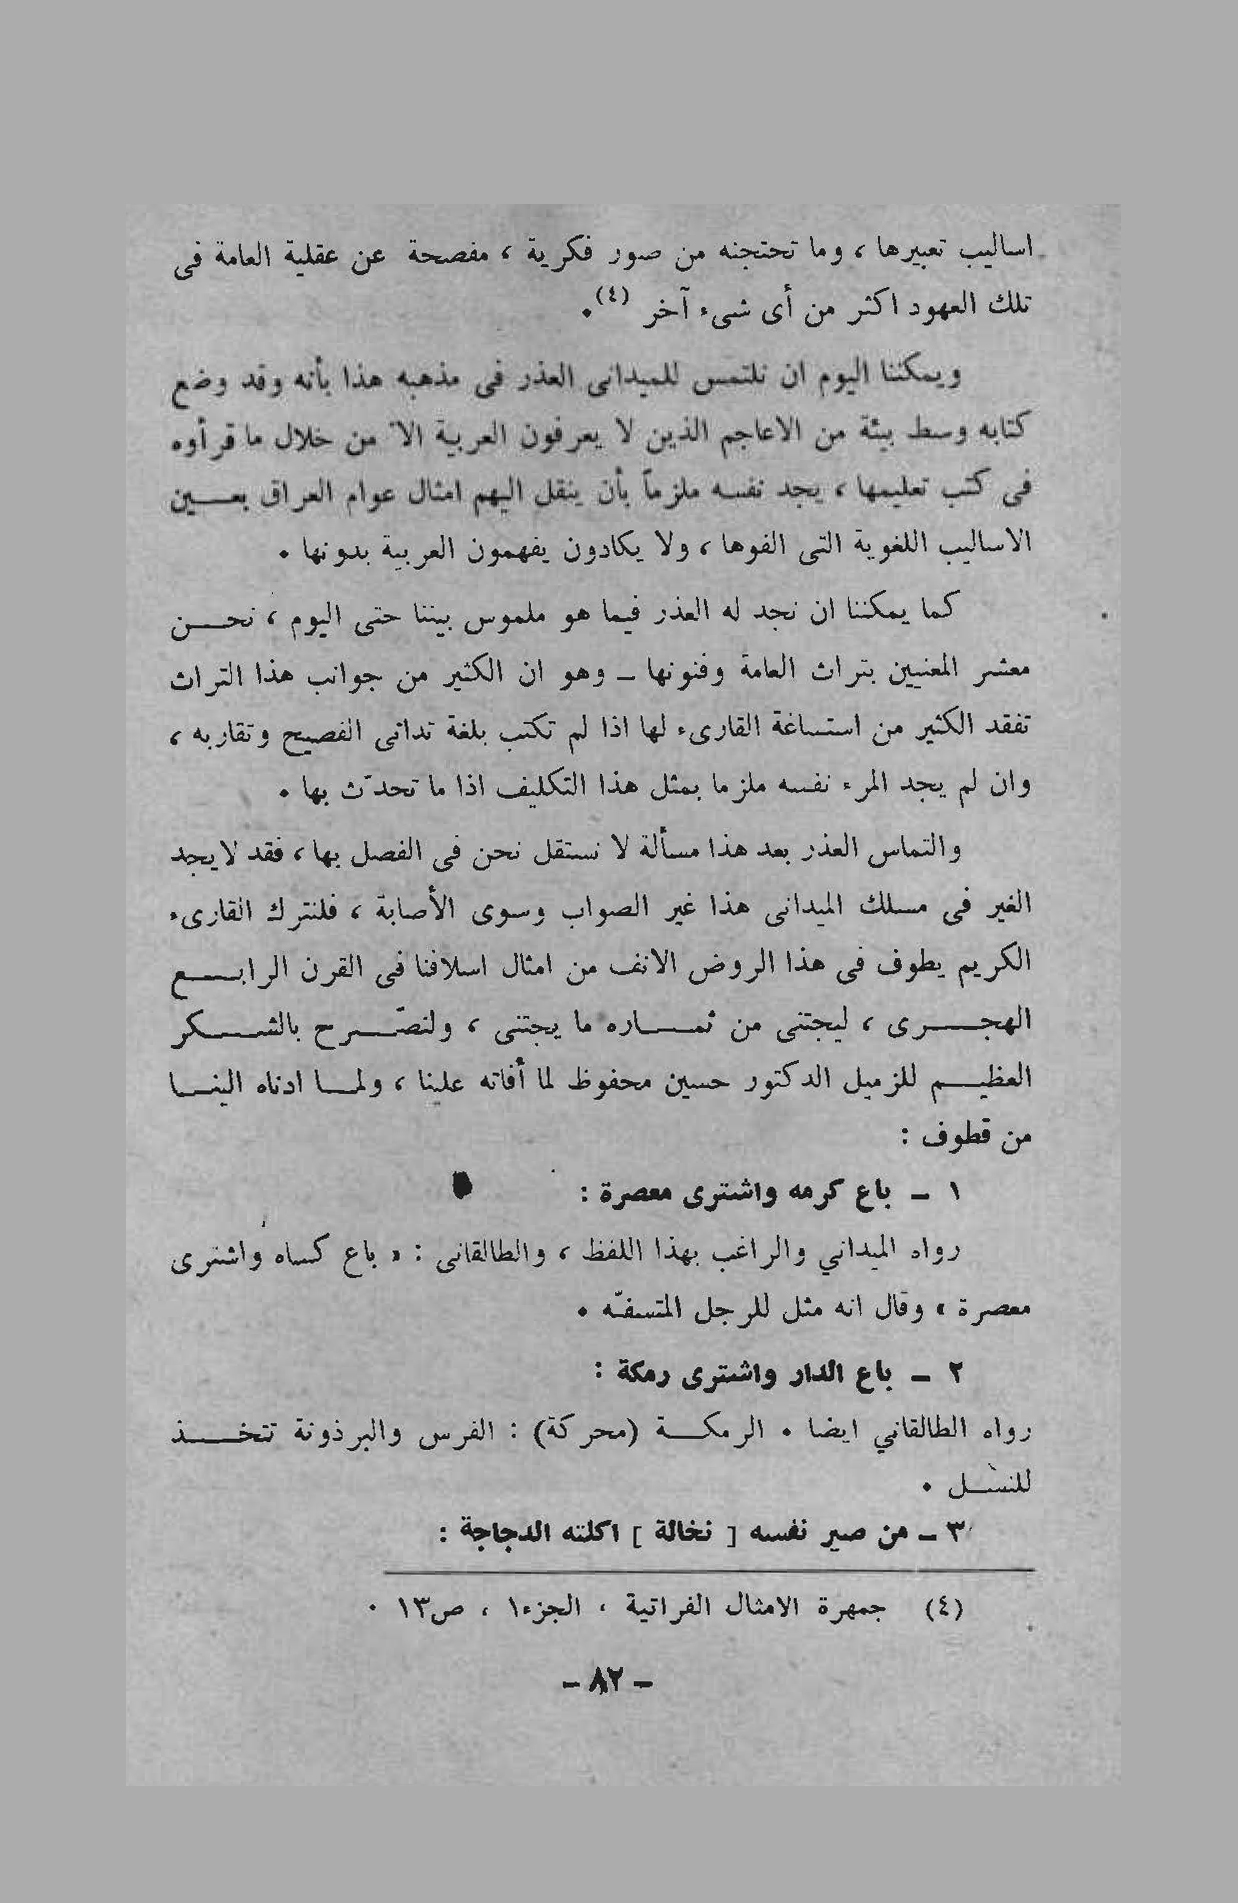 اساليب تعبيرها ، وما تحتجنه من صور فكرية ، مفصحة عن عقلية العامة فى
تلك العهود اكثر من أى شىء آخر (٤) ٠
ويمكننا اليوم ان نلتمس للميدانى العذر فى مذهبه هذا بأنه وقد وضع
كتابه وسط بيئة من الاعاجم الذين لا يعرفون العربية الاّ من خلال ما قرأوه
فى كتب تعليمها ، يجد نفسه ملزماً بأن ينقل اليهم امثال عوام العراق بعـــين
الاساليب اللغوية التى الفوها ، ولا يكادون يفهمون العربية بدونها ٠
كما يمكننا ان نجد له العذر فيما هو ملموس بيننا حتى اليوم ، نحـــن
معشر المعنيين بتراث العامة وفنونها ـ وهو ان الكثير من جوانب هذا التراث
تفقد الكثير من استساغة القارىء لها اذا لم تكتب بلغة تدانى الفصيح وتقاربه ،
وان لم يجد المرء نفسه ملزما بمثل هذا التكليف اذا ما تحدّث بها ٠
والتماس العذر بعد هذا مسألة لا نستقل نحن فى الفصل بها ، فقد لا يجد
الغير فى مسلك الميدانى هذا غير الصواب وسوى الأصابة ، فلنترك القارىء
الكريم يطوف فى هذا الروض الانف من امثال اسلافنا فى القرن الرابـــع
الهجـــرى ، ليجتنى من ثمـــاره ما يجتنى ، ولنصّـــرح بالشـــكر
العظيـــم للزميل الدكتور حسين محفوظ لما أفاته علينا ، ولمـــا ادناه الينـــا
من قطوف :
١ ـ باع كرمه واشترى معصرة :
رواه الميداني والراغب بهذا اللفظ ، والطالقانى : « باع كساه واشترى
معصرة » وقال انه مثل للرجل المتسفّه ٠
٢ ـ باع الدار واشترى رمكة :
رواه الطالقاني ايضا ٠ الرمكـــة (محركة) : الفرس والبرذونة تتخـــذ
للنســـل ٠
٣ ـ من صير نفسه [ نخالة ] اكلته الدجاجة :
(٤) جمهرة الامثال الفراتية ، الجزء١ ، ص١٣ ٠
ـ ٨٢ ـ